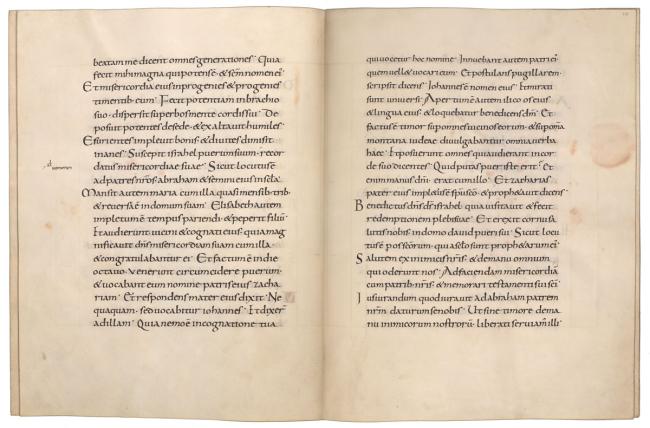 beatam me dicent omnes generationes· Quia
fecit mihi magna qui potens ē· & scm̄ nomen eī·
Et misericordia eius in progenies & progenies
timentib: eum· Fecit potentiam in brachio
suo· dispersit superbos mente cordis sui· De
posuit potentes de sede· & exaltavit humiles·
Esurientes implevit bonis· & divites dimisit
inanes· Suscepit israhel puerum suum· recor
datus misericordiae suae· Sicut locutus ē
ad patres nr̄os abraham & semini eius in scl̄a·
Mansit autem maria cum illa quasi mensib· trib·
& reversa ē in domum suam· Elisabeth autem
impletum ē tempus pariendi· & peperit filiū·
Et audierunt vicini & cognati eius· quia mag
nificavit dn̄s misericordiam suam cum illa·
& congratulabantur ei· Et factum ē in die
octavo· venerunt circumcidere puerum·
& vocabant eum nomine patris eius zacha
riam· Et respondens mater eius dixit· Ne
quaquam· sed vocabitur iohannes· Et dixer̄
ad illam· Quia nemo ē in cognatione tua
qui vocetur hoc nomine· Innuebant autem patri eī·
quem vell& vocari eum· Et postulans pugillarem·
scripsit dicens· Iohannes ē nomen eius· & mirati
sunt universi· Apertum ē autem ilico os eius
& lingua eius· & loquebatur benedicens dm̄· Et
factus ē timor super omnes vicinos eorum· & sup omīa
montana iudeae divulgabantur omnia verba
haec· Et posuerunt omnes qui audierant in cor
de suo dicentes· Quid putas puer iste erit· Et
enim manus dn̄i· erat cum illo· Et zacharias
pater eius implevit· ē spū scō· & prophavit dicens·
Benedictus dn̄s ds̄ israhel· quia visitavit & fecit
redemptionem plebis suae· Et erexit cornu sa
lutis nobis in domo david pueri sui· Sicut locu
tus ē p os scōrum· qui a sclō sunt prophetarum eī·
Salutem ex inimicis nr̄is· & de manu omnium
qui oderunt nos· Ad faciendam misericordiā
cum patrib· nr̄is· & memorari testamenti sui scī·
Iusiurandum quod iuravit ad abraham patrem
nr̄m· daturum se nobis· Ut sine timore de ma
nu inimicorum nostrorū· liberati serviam̄ illi·